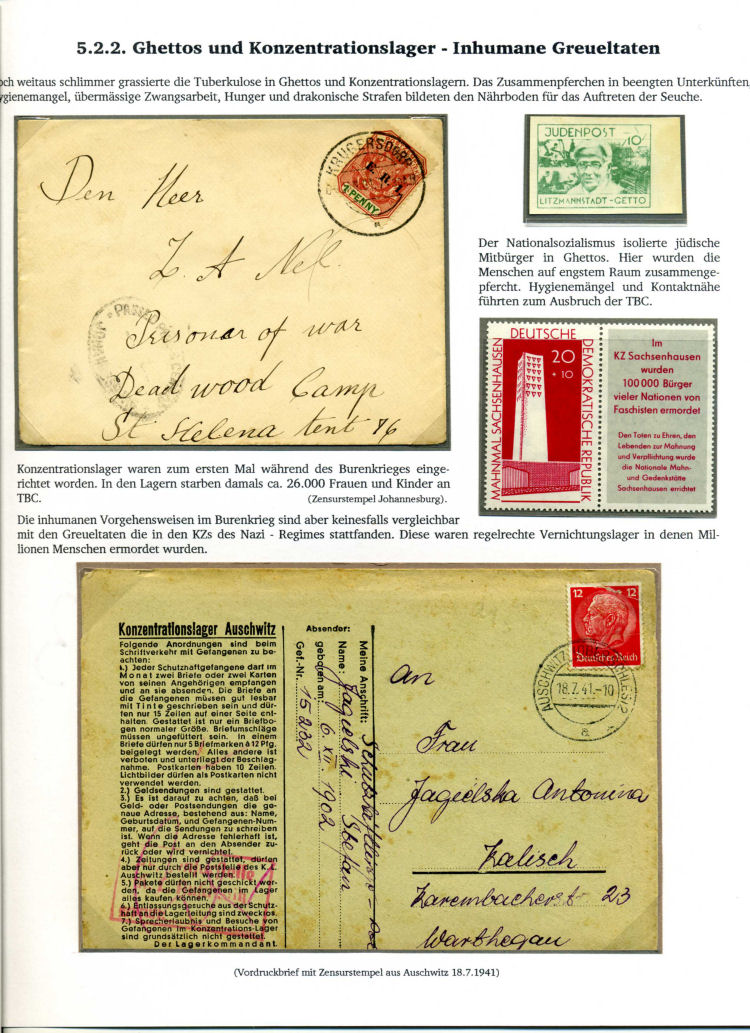 5.2.2. Ghettos und Konzentrationslager - Inhumane Greueltaten
och weitaus schlimmer grassierte die Tuberkulose in Ghettos und Konzentrationslagern. Das Zusammenpferchen in beengten Unterkünften,
ygienemangel, übermässige Zwangsarbeit, Hunger und drakonische Strafen bildeten den Nährboden für das Auftreten der Seuche.
KRUGERSDORP
E.R.I.
1 PENNY
Den Heer
L A Nel.
PASSED
Prisoner of war
Dead wood Camp
St Helena tent 76
JUDENPOST 10
LITZMANNSTADT-GETTO
Der Nationalsozialismus isolierte jüdische
Mitbürger in Ghettos. Hier wurden die
Menschen auf engstem Raum zusammenge-
pfercht. Hygienemängel und Kontaktnähe
führten zum Ausbruch der TBC.
MAHNMAL SACHSENHAUSEN
DEUTSCHE
DEMOKRATISCHE REPUBLIK
20
+ 10
Im
KZ Sachsenhausen
wurden
100 000 Bürger
vieler Nationen von
Faschisten ermordet
Den Toten zu Ehren, den
Lebenden zu Mahnung
und Verpflichtung wurde
die Nationale Mahn-
und Gedenkstätte
Sachsenhausen errichtet
Konzentrationslager waren zum ersten Mal während des Burenkrieges einge-
richtet worden. In den Lagern starben damals ca. 26.000 Frauen und Kinder an
TBC. (Zensurstempel Johannesburg).
Die inhumanen Vorgehensweisen im Burenkrieg sind aber keinesfalls vergleichbar
mit den Greueltaten die in den KZs des Nazi - Regimes stattfanden. Diese waren regelrechte Vernichtungslager in denen Mil-
lionen Menschen ermordet wurden.
Konzentrationslager Auschwitz
Folgende Anordnungen sind beim
Schriftverkehr mit Gefangenen zu be-
achten:
1.) Jeder Schutzhaftgefangene darf im
Monat zwei Briefe oder zwei Karten
von seinen Angehörigen empfangen
und an sie absenden. Die Briefe an
die Gefangenen müssen gut lesbar
mit Tinte geschrieben sein und dür-
fen nur 15 Zeilen auf einer Seite ent-
halten. Gestattet ist nur ein Briefbo-
gen normaler Größe. Briefumschläge
müssen ungefüttert sein. In einem
Briefe dürfen nur 5 Briefmarken à 12 Pfg.
beigelegt werden. Alles andere ist
verboten und unterliegt der Beschlag-
nahme. Postkarten haben 10 Zeilen.
Lichtbilder dürfen als Postkarten nicht
verwendet werden.
2.) Geldsendungen sind gestattet.
3.) Es ist darauf zu achten, daß bei
Geld- oder Postsendungen die ge-
naue Adresse, bestehend aus: Name,
Geburtsdatum, und Gefangenen-Num-
mer, auf die Sendungen zu schreiben
ist. Wenn die Adresse fehlerhaft ist,
geht die Post an den Absender zu-
rück oder wird vernichtet.
4.) Zeitungen sind gestattet, dürfen
aber nur durch die Poststelle des K. L.
Auschwitz bestellt werden.
5.) Pakete dürfen nicht geschickt wer-
den, da die Gefangenen im Lager
alles kaufen können.
6.) Entlassungsgesuche aus der Schutz-
haft an die Lagerleitung sind zwecklos.
7.) Sprecherlaubnis und Besuche von
Gefangenen im Konzentrations-Lager
sind grundsätzlich nicht gestattet.
Der Lagerkommandant.
Absender:
Meine Anschrift:
Name: Jagielski Stefan
geboren am: 6. XII. 1902
Gef.-Nr. 15232
12 12
Deutsches Reich
AUSCHWITZ
18.7.41.-10
a
An
Frau
Jagielska Antonina
Kalisch
Zarembacherstr 23
Warthegau
(Vordruckbrief mit Zensurstempel aus Auschwitz 18.7.1941)